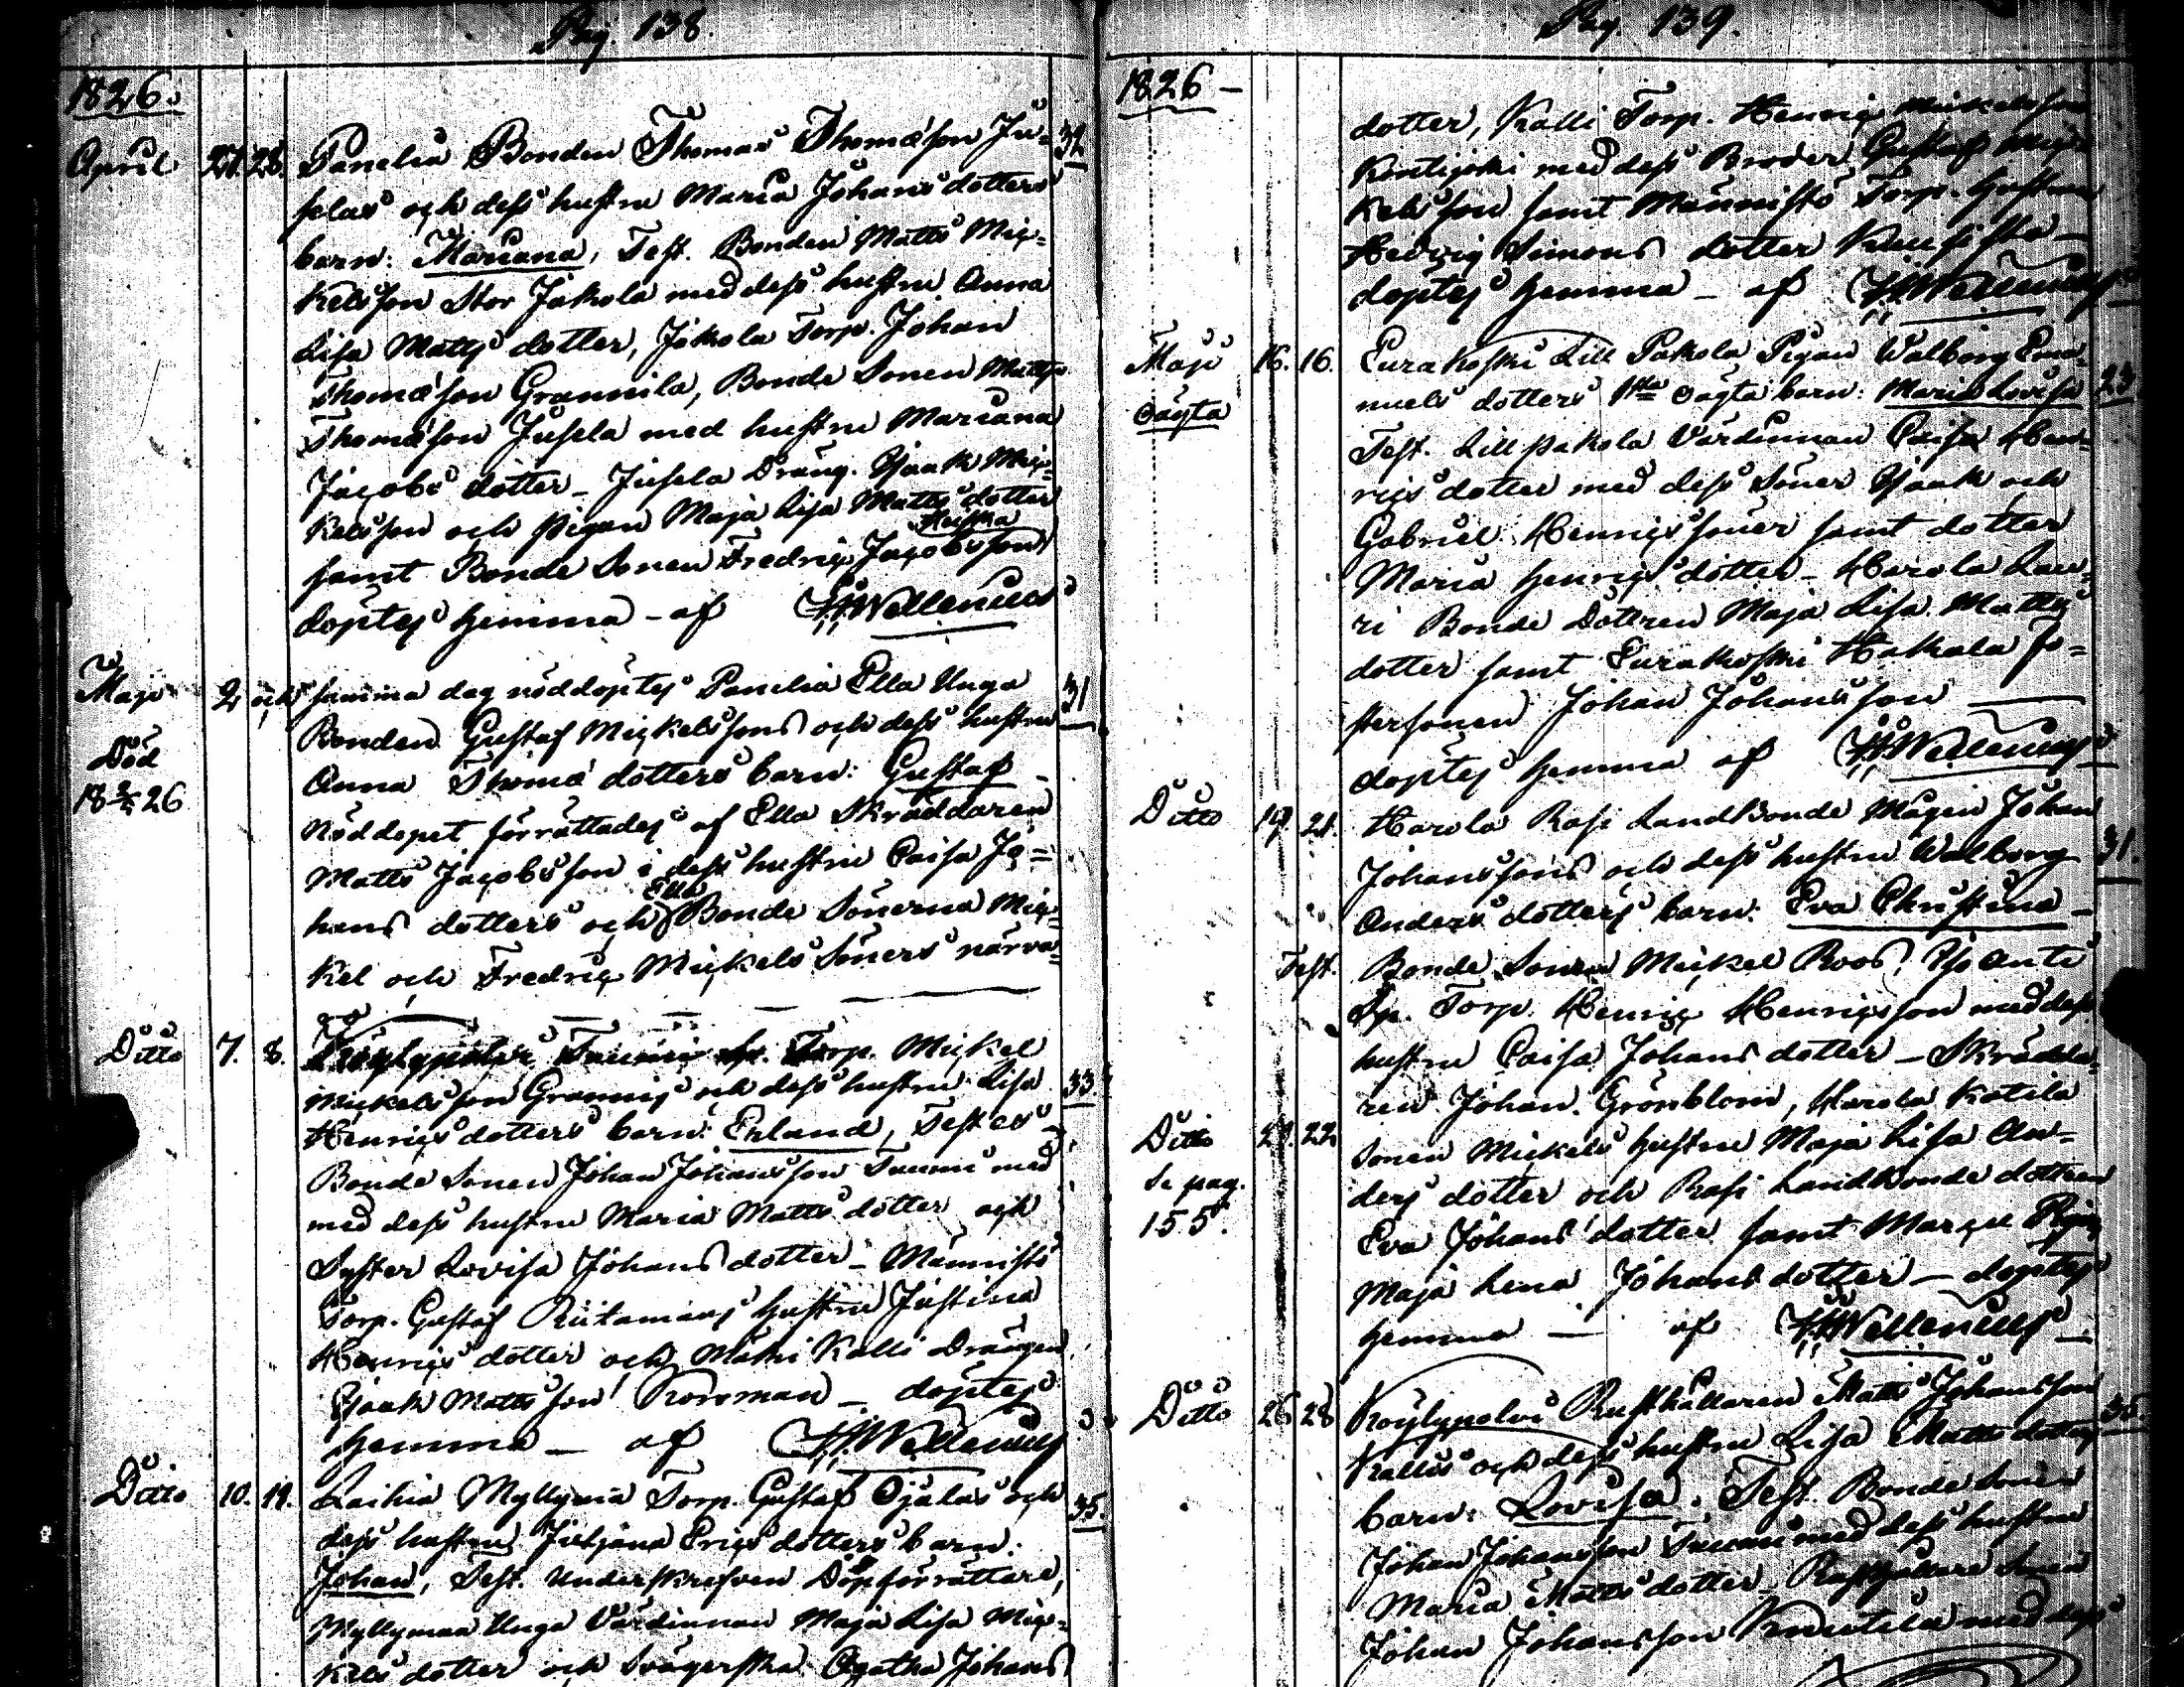 Pag. 138.
1826.
April 27. 28. Panelia Bonden Thomas Thomæson Ju= 32
selas och dess hustru Maria Johans dotters
barn: Mariana, Test. Bonden Matts Mic=
kelsson Stor Jakola med dess hustru Anna
Lisa Matts dotter, Jakola Torp. Johan
Thomæson Grannila, Bonde Sonen Matts
Thomæson Jusela med hustru Mariana
Jacobs dotter – Jusela Dräng. Isaak Mic=
kelsson och pigan Maja Lisa Matts dotter
samt Bonde Sonen Fredric Jacobsson
döptes hemma – af HHWellenius
Maji 2 och samma dag nöddöptes Panelia Ella Unga 31
Bonden Gustaf Mickelssons och dess hustru
Död Anna Thomæ dotters barn: Gustaf –
18 26 Nöddopet förrättades af Ella Skräddaren
Matts Jacobsson i dess hustru Caisa Jo=
hans dotters och Ella Bonde Sönerna Mic=
kel och Fredric Mickels Söners närva=
Ditto 7. 8. Torp. Mickel
Mickelsson Grannis och dess hustru Lisa 33.
Henrics dotters barn: Erland, Testes –
Bonde Sonen Johan Johansson Tuomi med
med dess hustru Maria Matts dotter och
Syster Lovisa Johans dotter – Männistö
Torp. Gustaf Riitamaas hustru Justina
Henrics dotter och Mäki Kalli Drängen
Isaak Matts son Korsman – döptes
hemma – af HHWellenius
Ditto 10. 14. Laihia Myllymaa Torp. Gustaf Ojalas och 35.
dess hustru Juljana Erics dotters barn:
Johan, Test. Underskrefven Döpförrättare,
Myllymaa Unga Värdinnan Maja Lisa Mic=
kels dotter och Svägerska Agatha Johans
Pag. 139.
1826 –
dotter, Kalli Torp. Henric Mickelsson
med dess Broder Gustaf Mic
kelsson samt Männistö Torp. hustrun
Hedvig Simons dotter
döptes hemma – af HHWellenius
Maji 16. 16. Eurakoski Lill Pakola Pigan Walborg Ema=
oägta nuels dotters 1sta oägta barn: Maria Lovisa 23
Test. Lill pakola Värdinnan Caisa Hen=
rics dotter med dess Söner Isaak och
Gabriel Henrics söner samt dotter
Maria Henrics dotter – Harola Lau=
ri Bonde Dottren Maja Lisa Matts
dotter samt Eurakoski Hakala fo=
stersonen Johan Johansson –
döptes hemma af HHWellenius
Ditto 19. 21. Harola Rasi Landbonde Mågen Johan
Johanssons och dess hustru Walborg 31.
Anders dotters barn: Eva Christina –
Test. Bonde Sonen Mickel Roos,
Sp. Torp. Henric Henricsson med dess
hustru Caisa Johans dotter – Skrädda=
ren Johan Grönblom, Harola Katila
Ditto 21. 22. Sonen Mickels hustru Maja Lisa An=
Se pag. ders dotter och Rasi Landbonde dottren
155. Eva Johans dotter samt Marcu Pigan
Maja Lena Johans dotter – döptes
hemma – af HHWellenius –
Ditto 26 28 Köylypolvi Rusthållaren Matts Johansson
Kallis och dess hustru Lisa Matts dotters
barn: Lovisa. Test. Bonde Sonen
Johan Johansson Tuomi med dess hustru
Maria Matts dotter – Rusthållare Sonen
Johan Johansson Knutila med dess